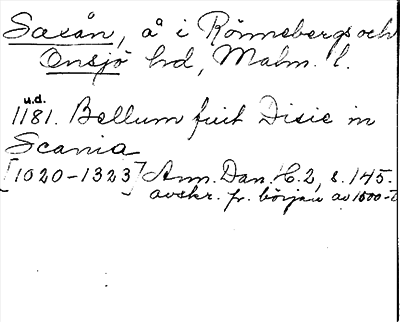 Saxån, å i Rönnebergs och
Onsjö hd, Malm. l.
u.d.
1181. Bellum fuit Disie in
Scania
[1020-1323] Ann. Dan. H. 2, s. 145.
avskr. fr. början av 1500-t